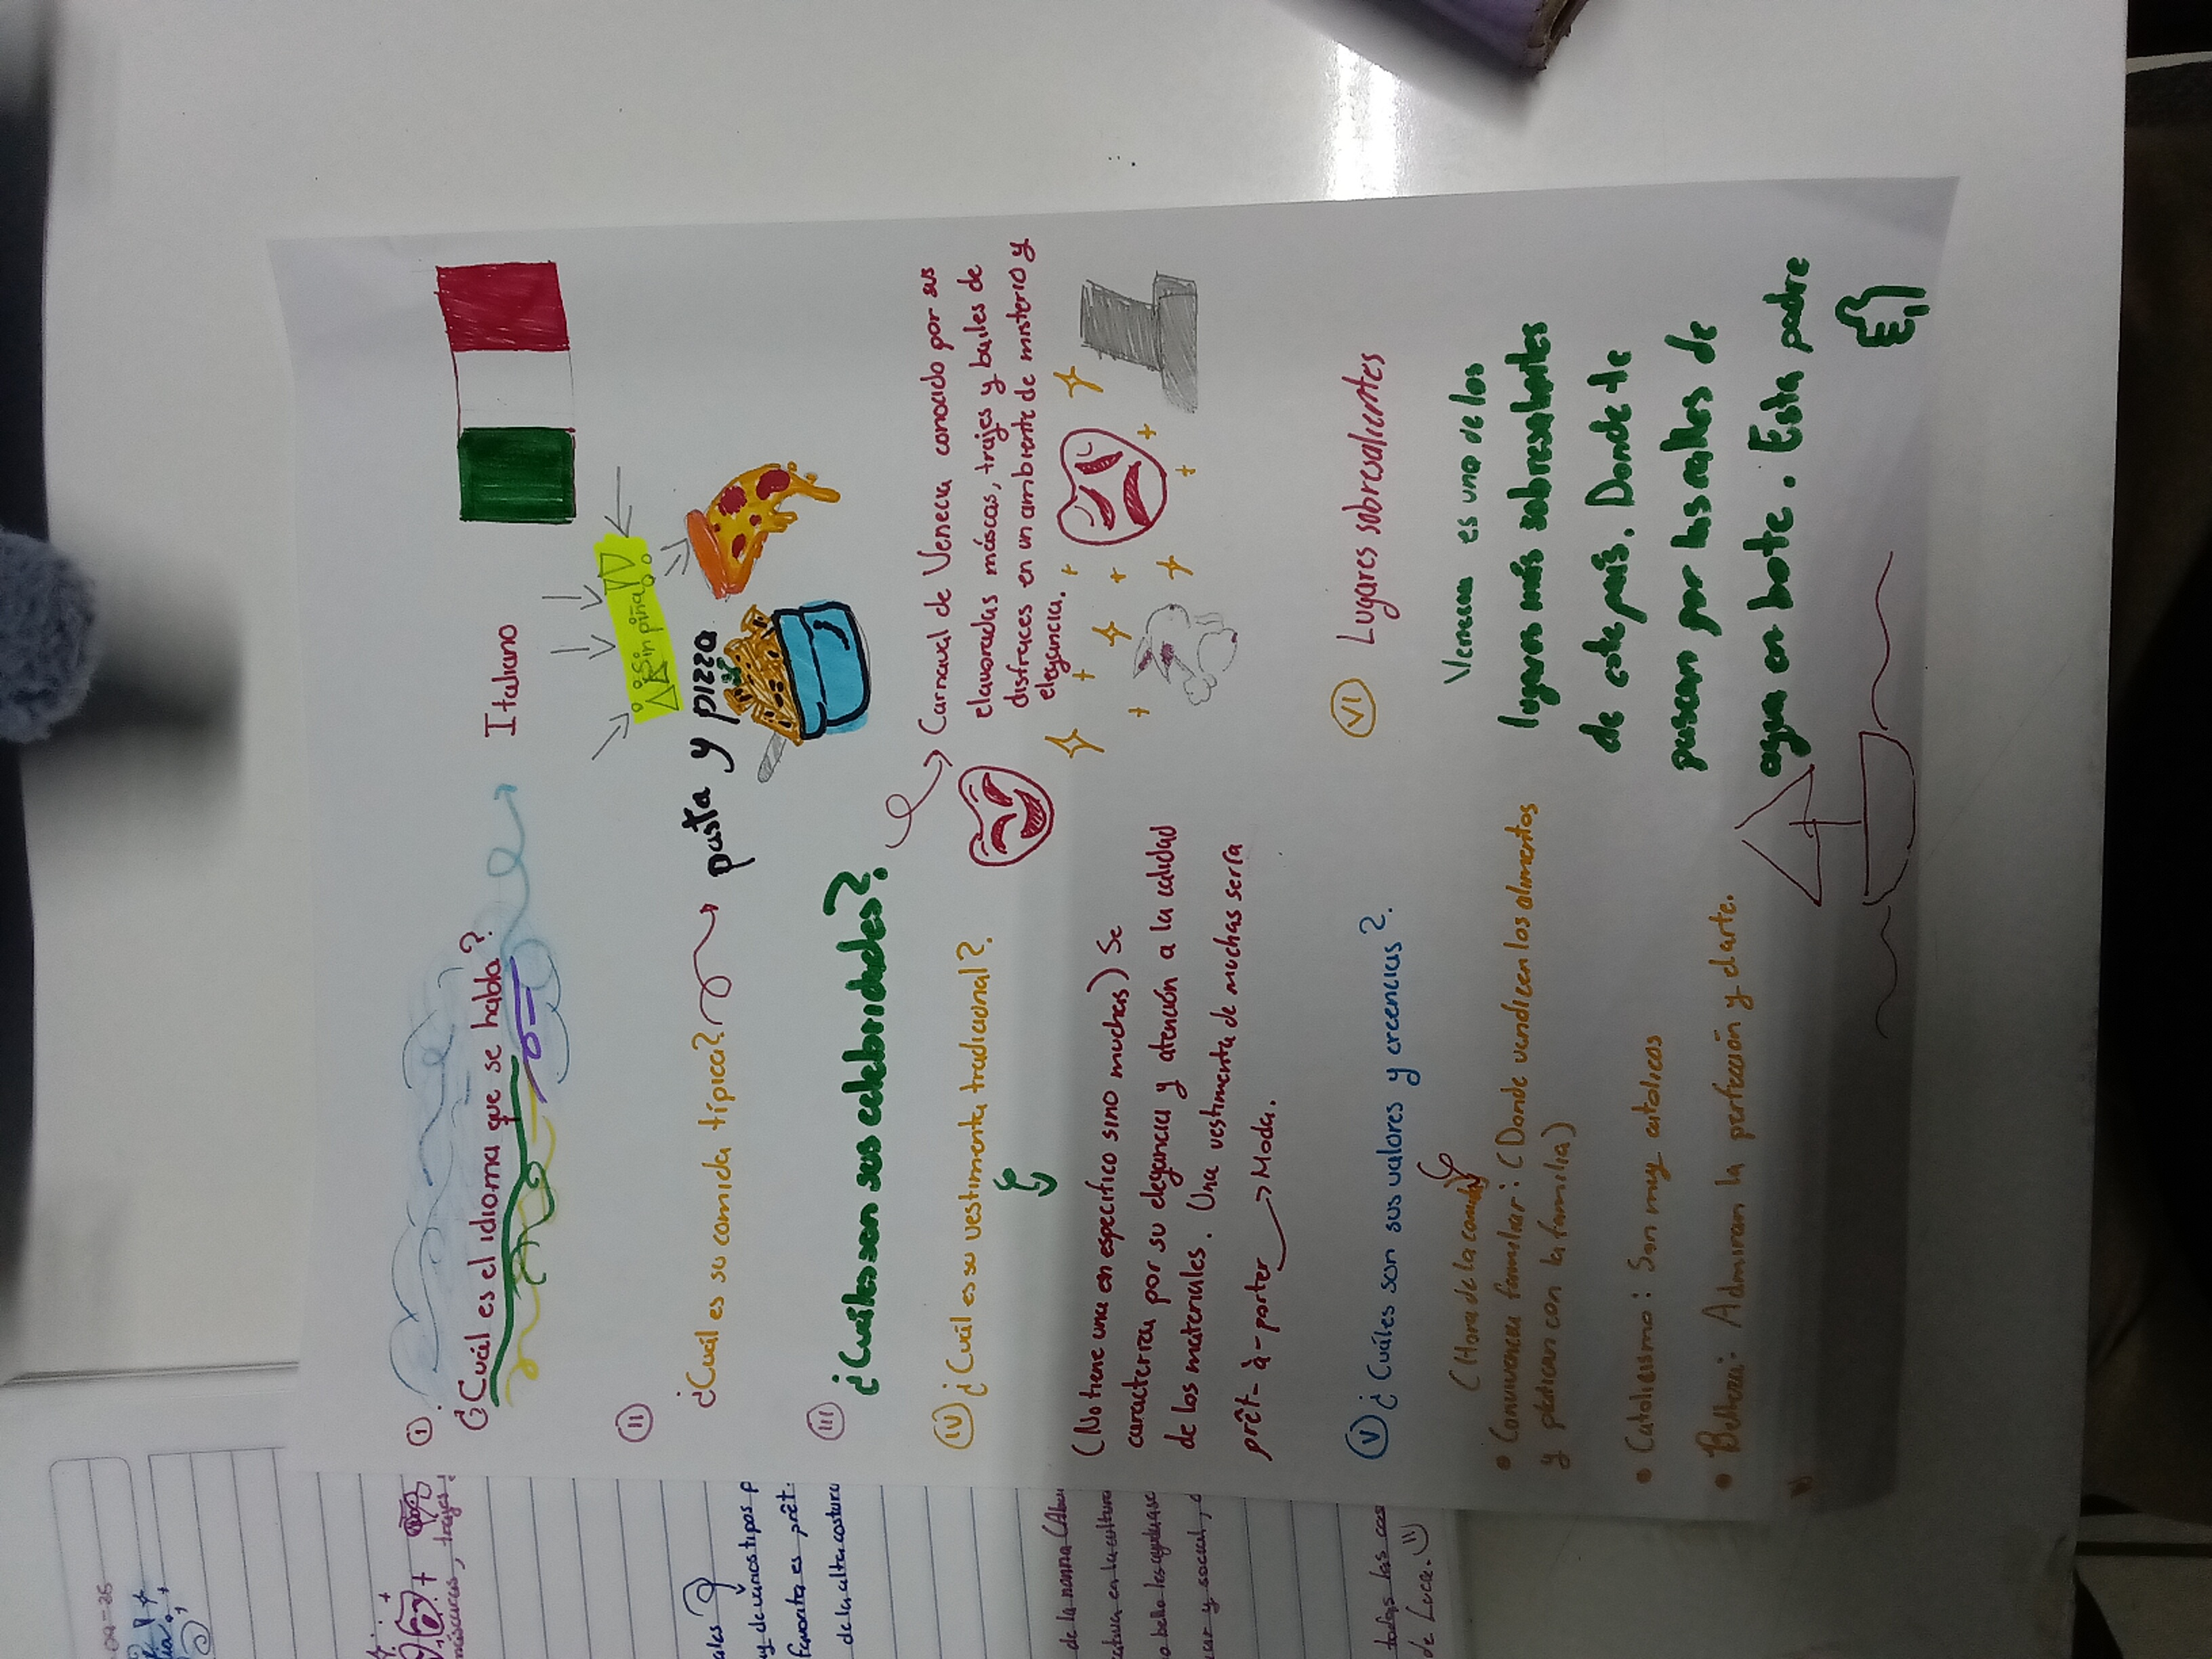 I.
¿Cuál es el idioma que se habla?
Italiano
¡¡¡Sin piña!!!
II
¿Cuál es su comida típica?
pasta y pizza
III
¿Cuáles son sus celebridades?
Carnaval de Venecia conocido por sus
elavoradas máscas, trajes y bailes de
disfraces en un ambiente de misterio y
elegancia.
IV ¿Cuál es su vestimenta tradicional?.
(No tiene una en especifico sino muchas) Se
caracteriza por su elegancia y atención a la calidad
de los materiales. Una vestimenta de muchas sería
prêt-à-porter → Moda.
V ¿Cuáles son sus valores y creencias?.
(Hora de la comida
• Convivencia familiar: (Donde vendicen los alimentos
y platican con la familia)
• Catolicismo: Son muy catolicos
• Belleza: Admiran la perfección y el arte.
VI Lugares sobresalientes
Venecia es uno de los
lugares más sobresalientes
de este país. Donde te
pasean por las calles de
agua en bote. Esta padre
09-25
máscaras, trajes
y de varios tipos p
favorita es prêt-
de la alta costura
de la nonna
todas las cos
de Luca.